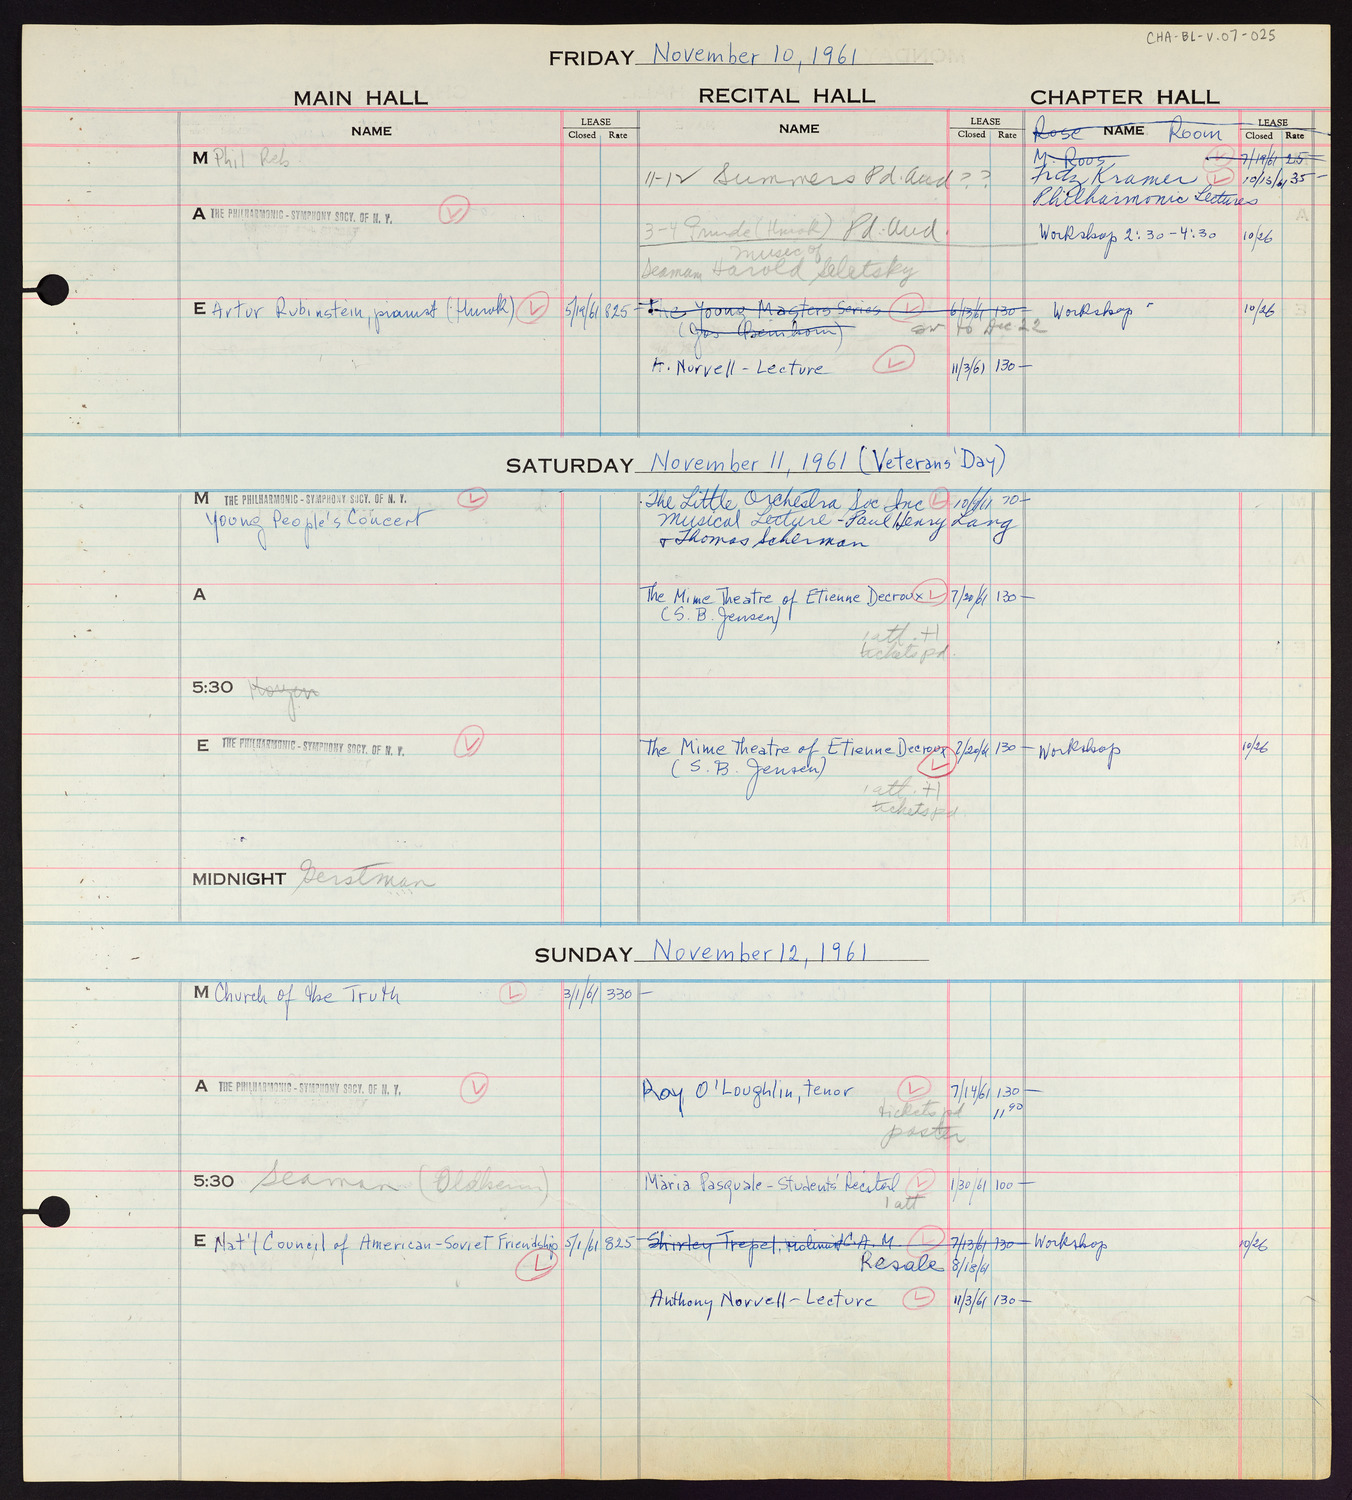 CHA-BL-V.07-025
FRIDAY November 10, 1961
MAIN HALL RECITAL HALL CHAPTER HALL
NAME LEASE Closed Rate NAME LEASE Closed Rate NAME LEASE Closed Rate
Rose Room
M Phil Reh
11-12 Summers Pd. Aud ??
M. Roos 7/19/61 25-
Fritz Kramer 10/13/61 35-
Philharmonic Lectures
A THE PHILHARMONIC-SYMPHONY SOCY. OF N. Y.
3-4 (Hurok) Pd. Aud.
Workshop 2:30-4:30 10/26
music of
Seaman Harold Seletsky
E Artur Rubinstein, pianist (Hurok) 5/19/61 825-
The Young Masters Series 6/13/61 130-
to Dec 22
Workshop " 10/26
A. Norvell - Lecture 11/3/61 130-
SATURDAY November 11, 1961 (Veterans' Day)
M THE PHILHARMONIC-SYMPHONY SOCY. OF N. Y.
Young People's Concert
The Little Orchestra Soc Inc 10/9/61 70-
Musical Lecture - Paul Henry Lang
+ Thomas Scherman
A
The Mime Theatre of Etienne Decroux 7/20/61 130-
(S. B. Jensen)
1 att. +1
tickets pd.
5:30
E THE PHILHARMONIC-SYMPHONY SOCY. OF N. Y.
The Mime Theatre of Etienne Decroux 7/20/61 130-
(S. B. Jensen)
Workshop 10/26
1 att. +1
tickets pd.
MIDNIGHT Gerstman
SUNDAY November 12, 1961
M Church of the Truth 3/1/61 330-
A THE PHILHARMONIC-SYMPHONY SOCY. OF N. Y.
Roy O'Loughlin, tenor 7/14/61 130-
tickets pd 11 90
poster
5:30 Seaman
Maria Pasquale - Students' Recital 1/30/61 100-
1 att
E Nat'l Council of American-Soviet Friendship 5/1/61 825-
Shirley Trepel, violinist C.A.M. 7/13/61 130-
Workshop 10/26
Resale 8/18/61
Anthony Norvell - Lecture 11/3/61 130-